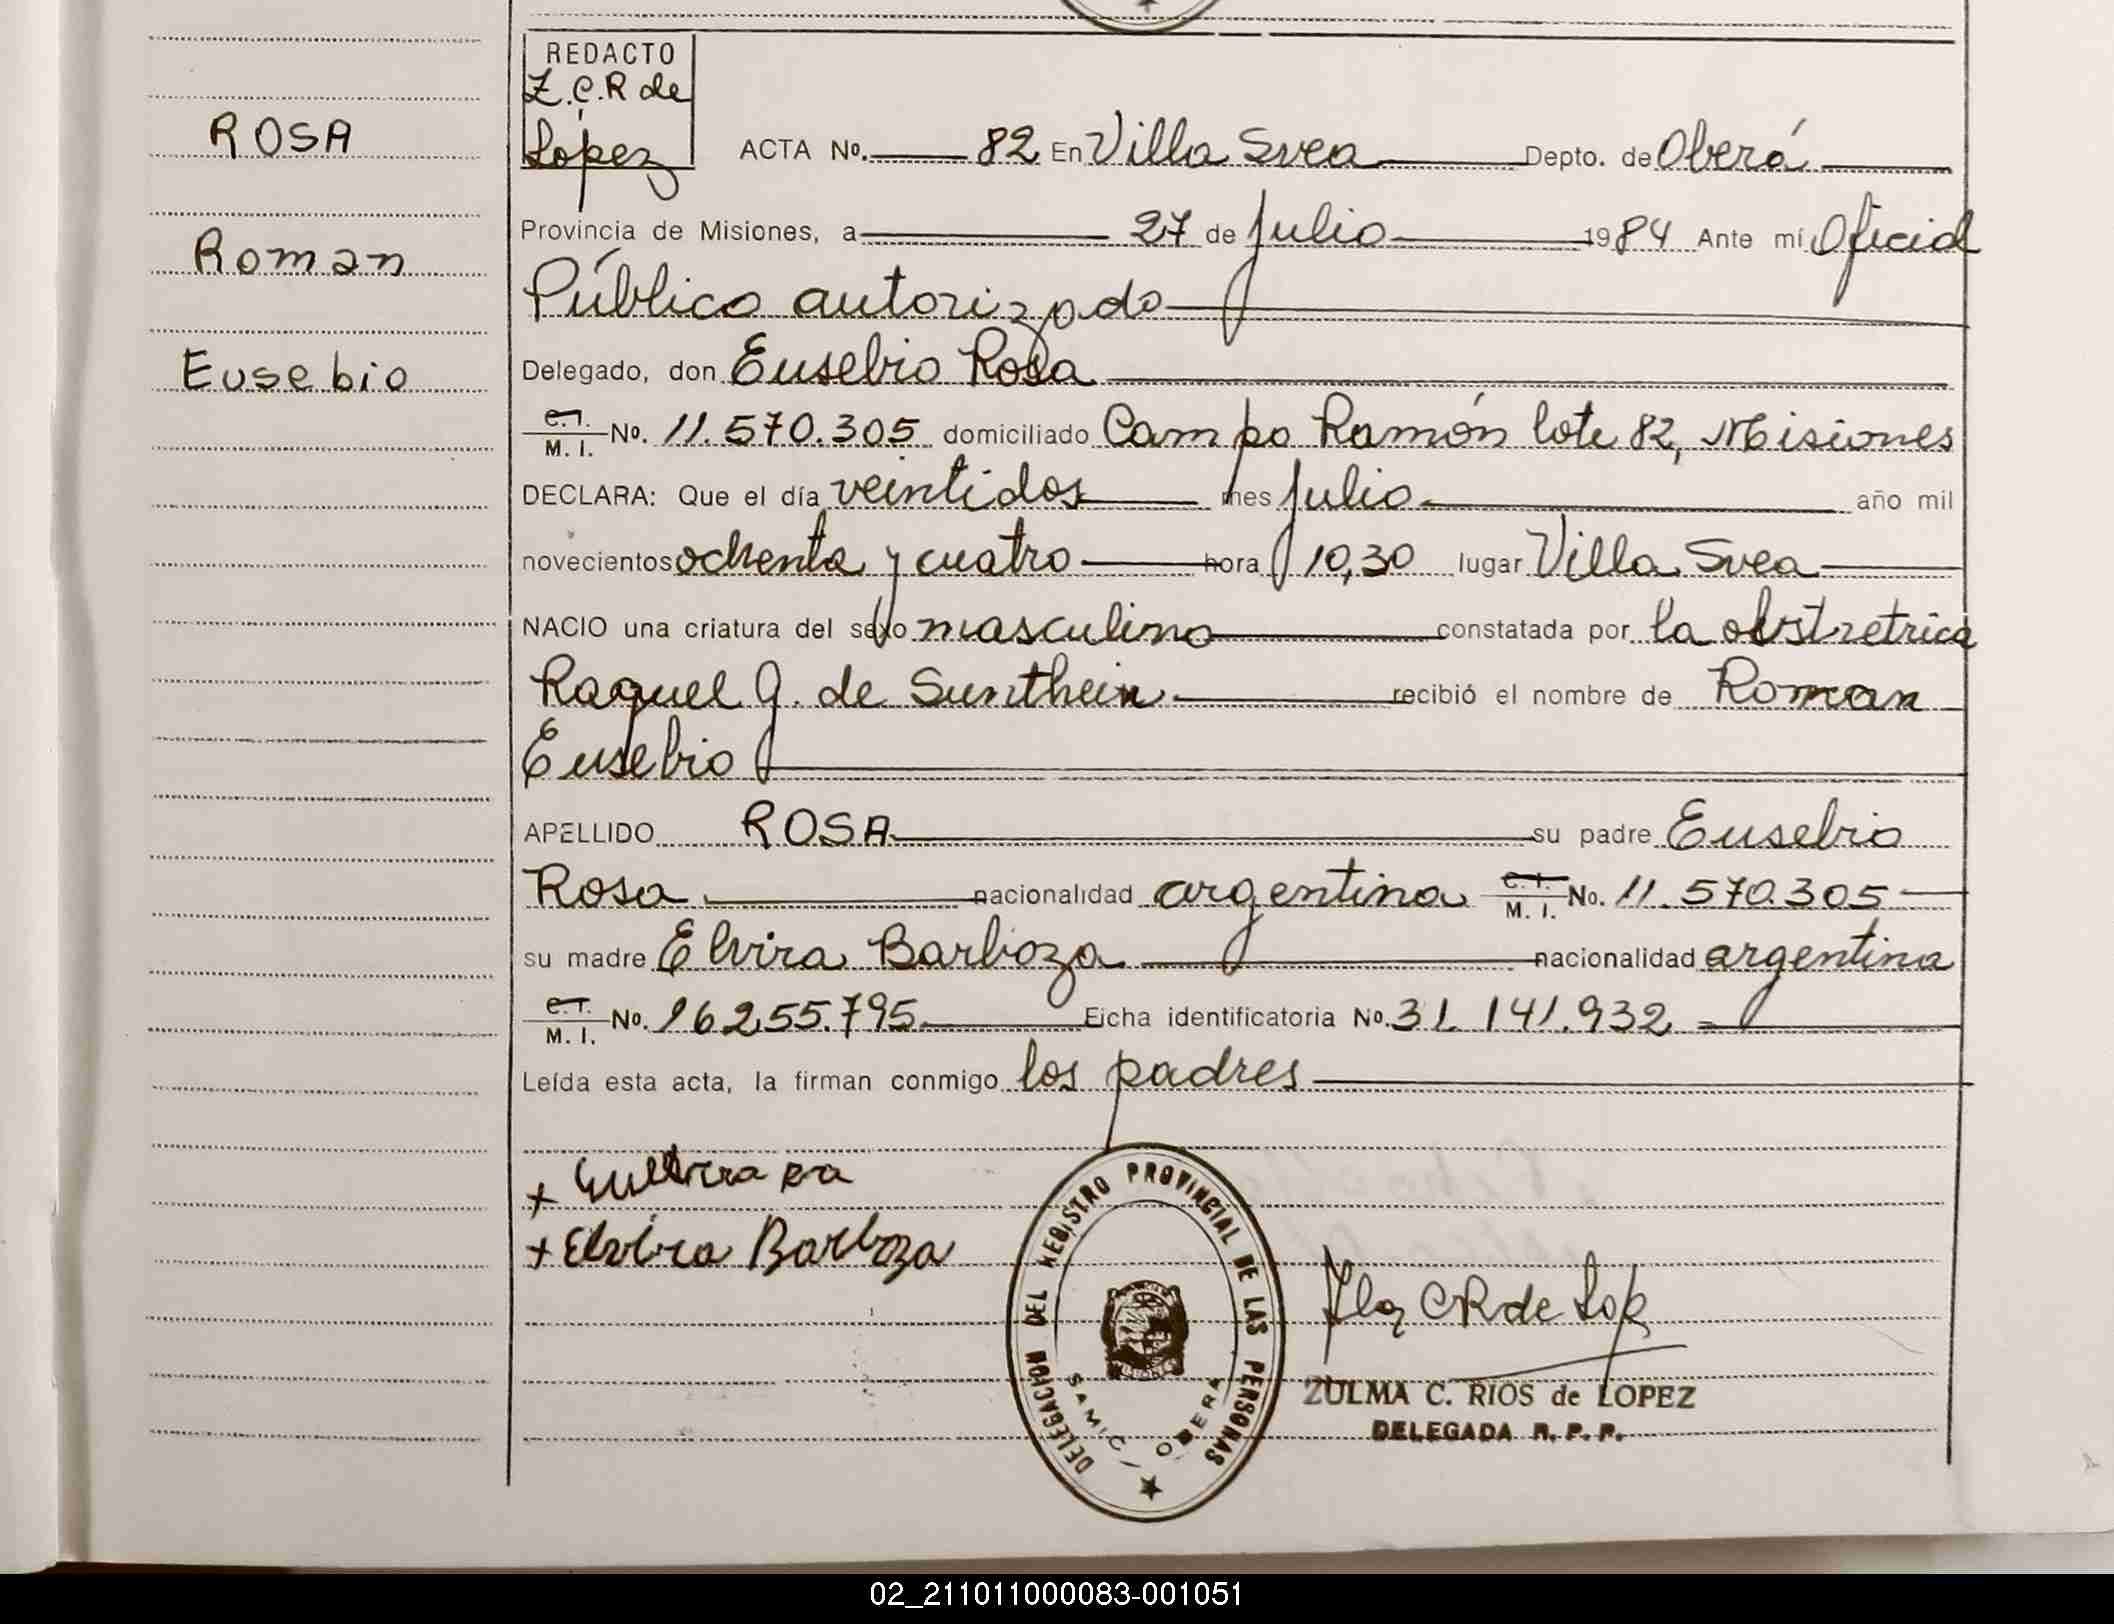 REDACTO
Z.C.R de
López
ROSA
ACTA No. 82 En Villa Svea Depto. de Oberá
Provincia de Misiones, a 27 de Julio 1984 Ante mí Oficial
Roman
Público autorizado
Eusebio
Delegado, don Eusebio Rosa
C.I. M. I. No. 11.570.305 domiciliado Campo Ramón lote 82, Misiones
DECLARA: Que el día veintidos mes Julio año mil
novecientos ochenta y cuatro hora 10,30 lugar Villa Svea
NACIO una criatura del sexo masculino constatada por la obstretrica
Raquel G. de Sunthein recibió el nombre de Roman
Eusebio
APELLIDO ROSA su padre Eusebio
Rosa nacionalidad argentina C.I. M. I. No. 11.570.305
su madre Elvira Barboza nacionalidad argentina
C.I. M. I. No. 16.255.795 Ficha identificatoria No. 31.141.932
Leída esta acta, la firman conmigo los padres
+ Elvira Barboza
DELEGACION DEL REGISTRO PROVINCIAL DE LAS PERSONAS
SAMIC OBERA
ZULMA C. RIOS de LOPEZ
DELEGADA R. P. P.
02_211011000083-001051